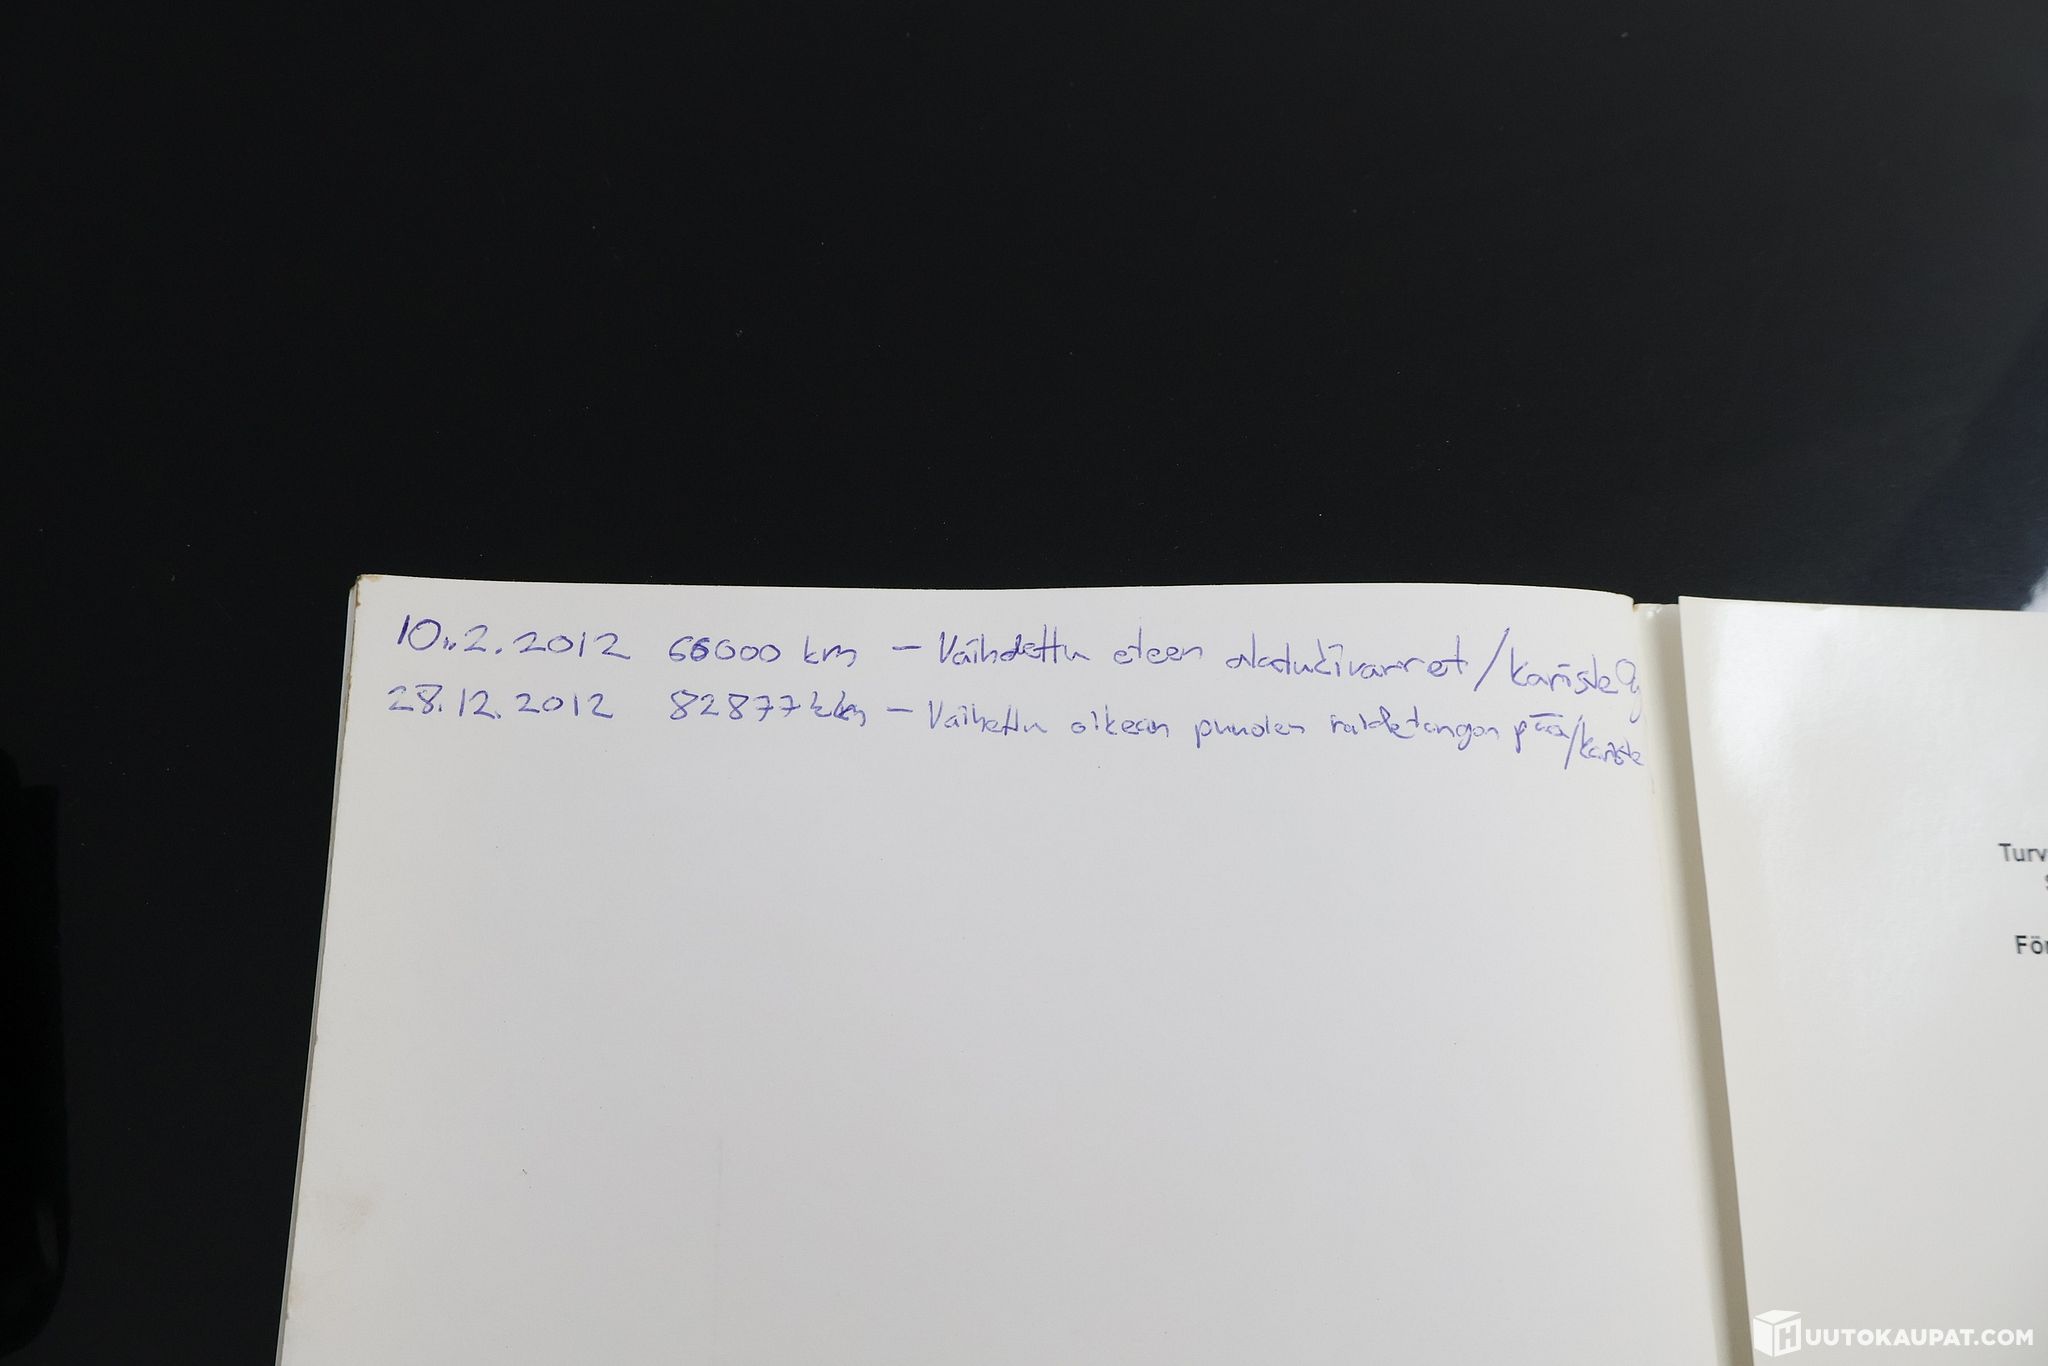 10.2.2012 66000 km – Vaihdettu eteen alatukivarret/Kariste Oy
28.12.2012 82877 km – Vaihettu oikean puolen raidetangon pää/Kariste
Turv
För
HUUTOKAUPAT.COM